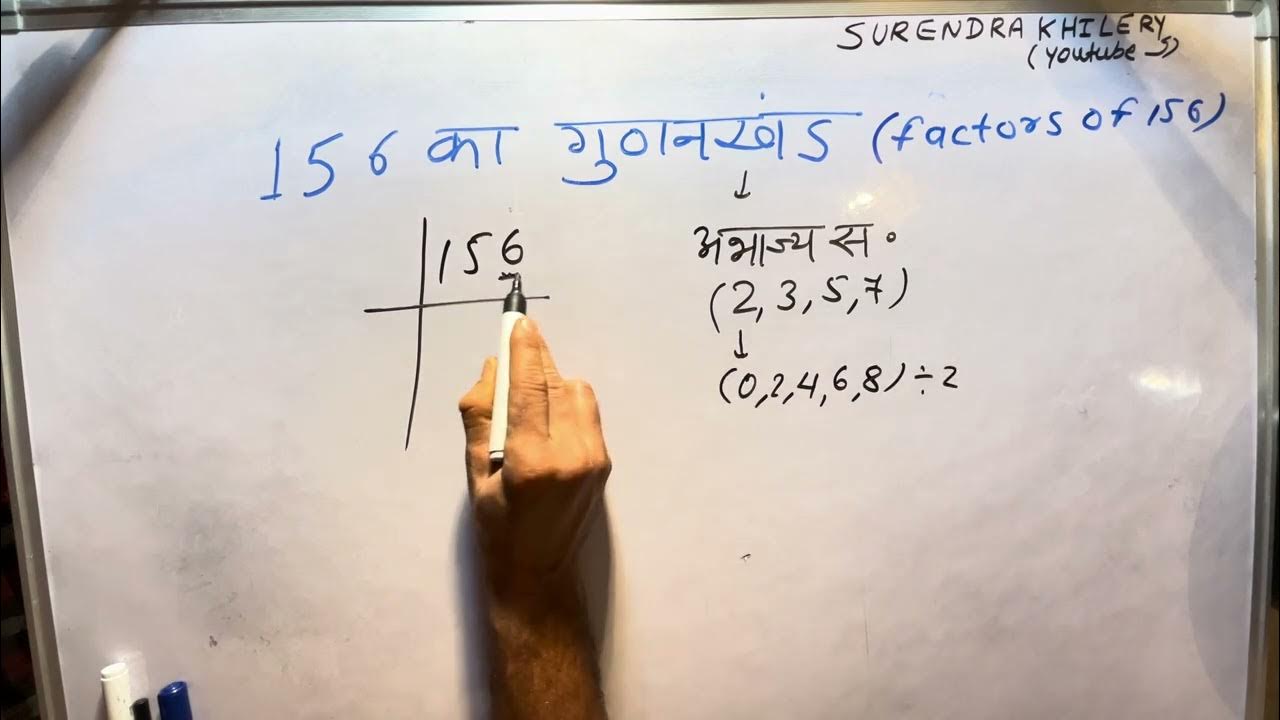 SURENDRA KHILERY
(Youtube
156 का गुणनखंड (factors of 156)
↓
156
अभाज्य स॰
(2, 3, 5, 7)
↓
(0, 2, 4, 6, 8) ÷ 2